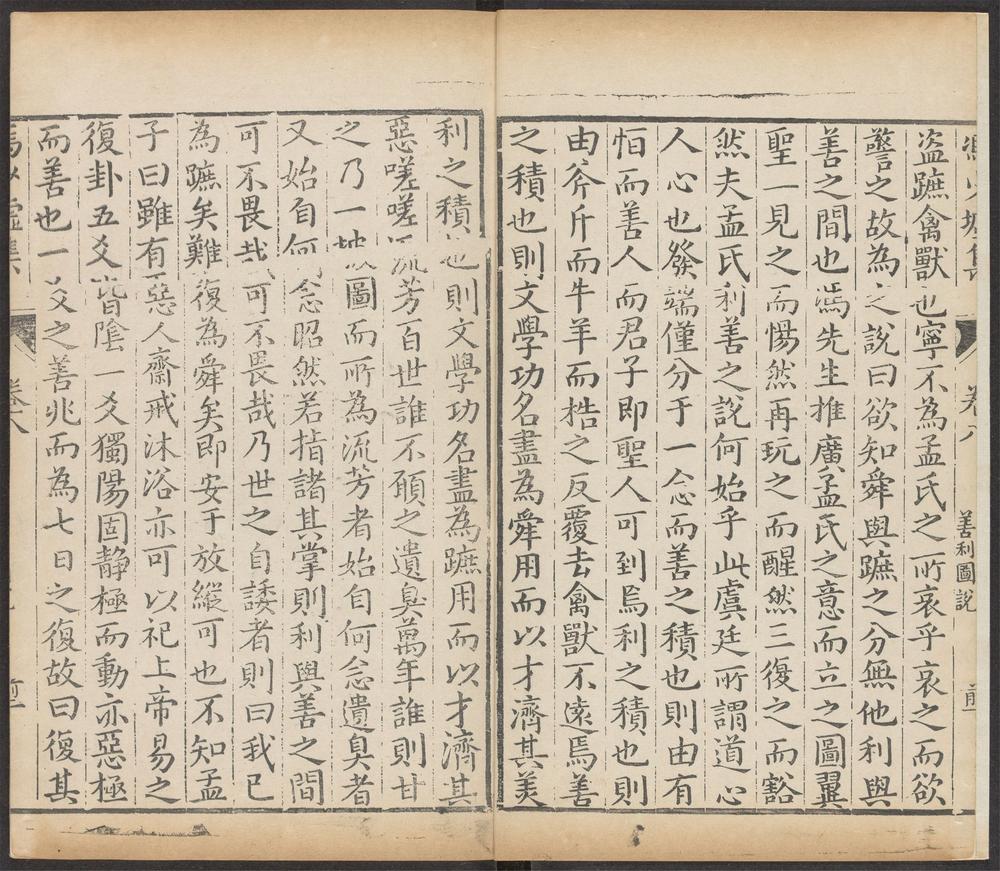 馮少墟集
卷八
善利圖說
前一
盜蹠禽獸也寧不為孟氏之所哀乎哀之而欲
警之故為之說曰欲知舜與蹠之分無他利與
善之間也馮先生推廣孟氏之意而立之圖翼
聖一見之而惕然再玩之而醒然三復之而豁
然夫孟氏利善之說何始乎此虞廷所謂道心
人心也發端僅分于一念而善之積也則由有
恒而善人而君子即聖人可到焉利之積也則
由斧斤而牛羊而梏之反覆去禽獸不遠焉善
之積也則文學功名盡為舜用而以才濟其美
利之積也則文學功名盡為蹠用而以才濟其
惡嗟嗟流芳百世誰不願之遺臭萬年誰則甘
之乃一披圖而所為流芳者始自何念遺臭者
又始自何念昭然若指諸其掌則利與善之間
可不畏哉可不畏哉乃世之自諉者則曰我已
為蹠矣難復為舜矣即安于放縱可也不知孟
子曰雖有惡人齋戒沐浴亦可以祀上帝易之
復卦五爻皆陰一爻獨陽固靜極而動亦惡極
而善也一爻之善兆而為七日之復故曰復其
馮少墟集
卷八